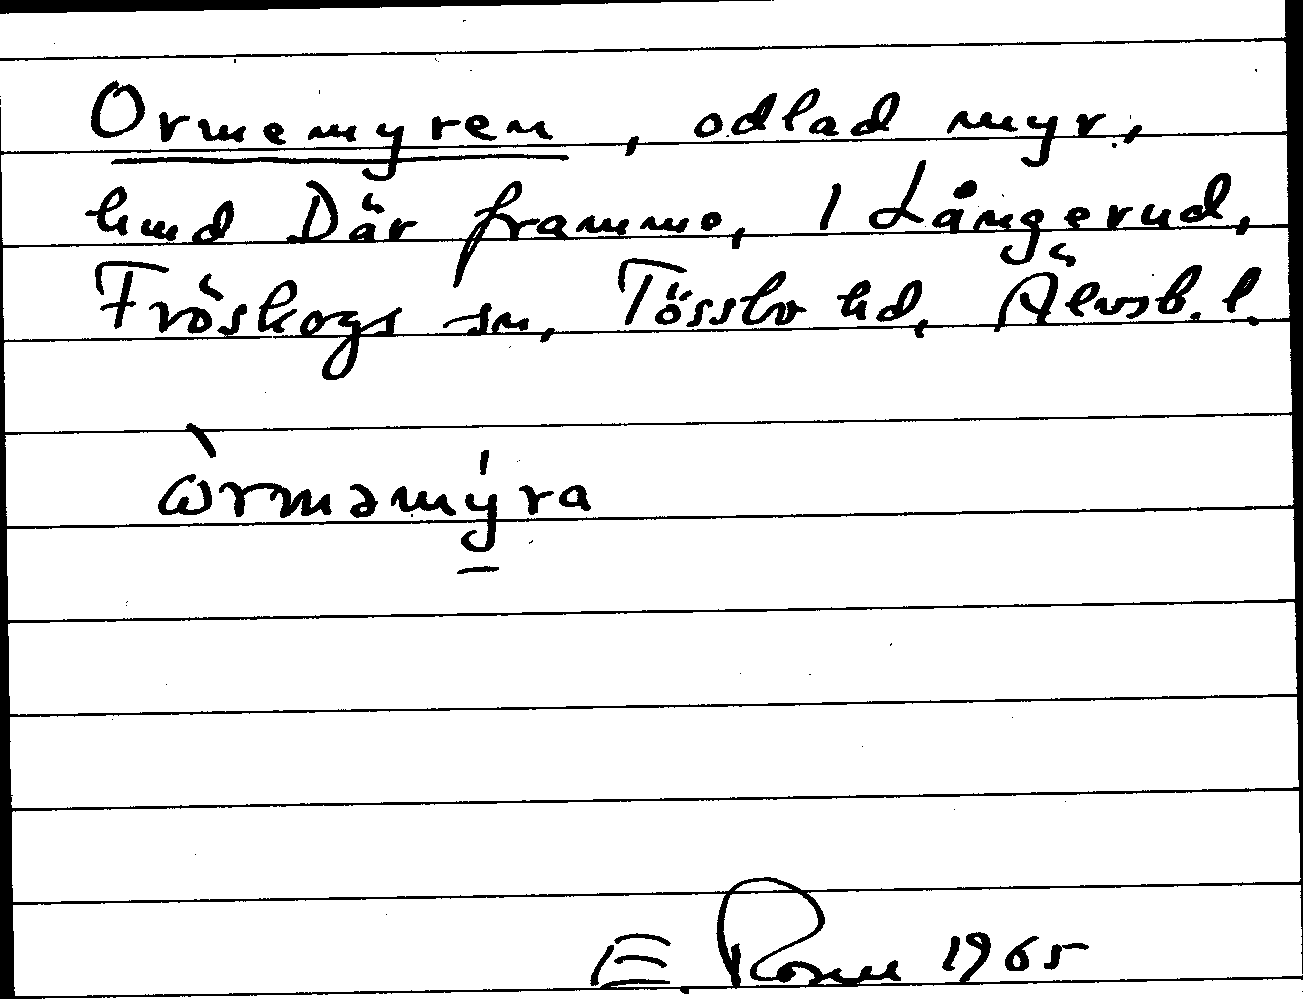 Ormemyren, odlad myr,
hmd Där framme, 1 Långerud,
Fröskogs sn, Tössbo hd, Älvsb. l.
ὼrməmýra
E. Rosell 1965